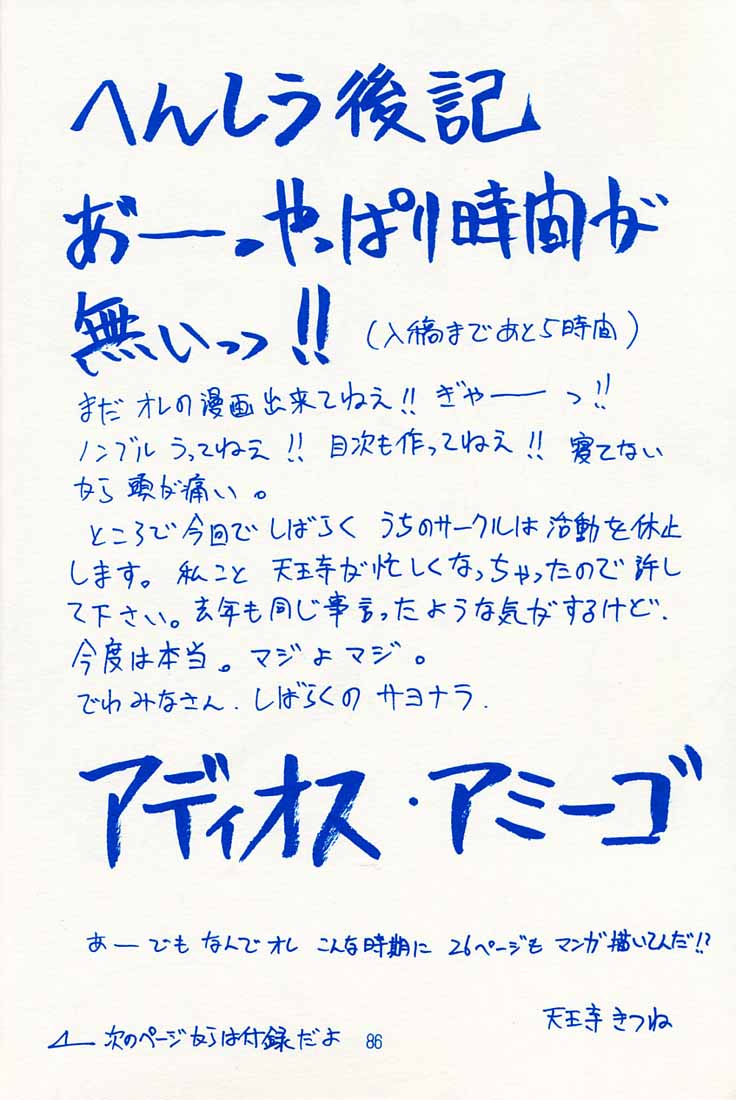 へんしう後記
あ゛ーっやっぱり時間が
無いっっ!!(入稿まであと5時間)
まだ オレの漫画出来てねえ!! ぎゃーーっ!!
ノンブル うってねえ!! 目次も作ってねえ!! 寝てない
から 頭が痛い。
ところで今回で しばらく うちのサークルは 活動を休止
します。 私こと 天王寺が忙しくなっちゃったので 許し
て下さい。去年も同じ事言ったような気がするけど.
今度は本当。マジよ マジ。
でわ みなさん. しばらくの サヨナラ.
アディオス・アミーゴ
あーでも なんでオレ こんな時期に 26ページも マンガ描いてんだ!?
天王寺きつね
次のページからは付録だよ
86